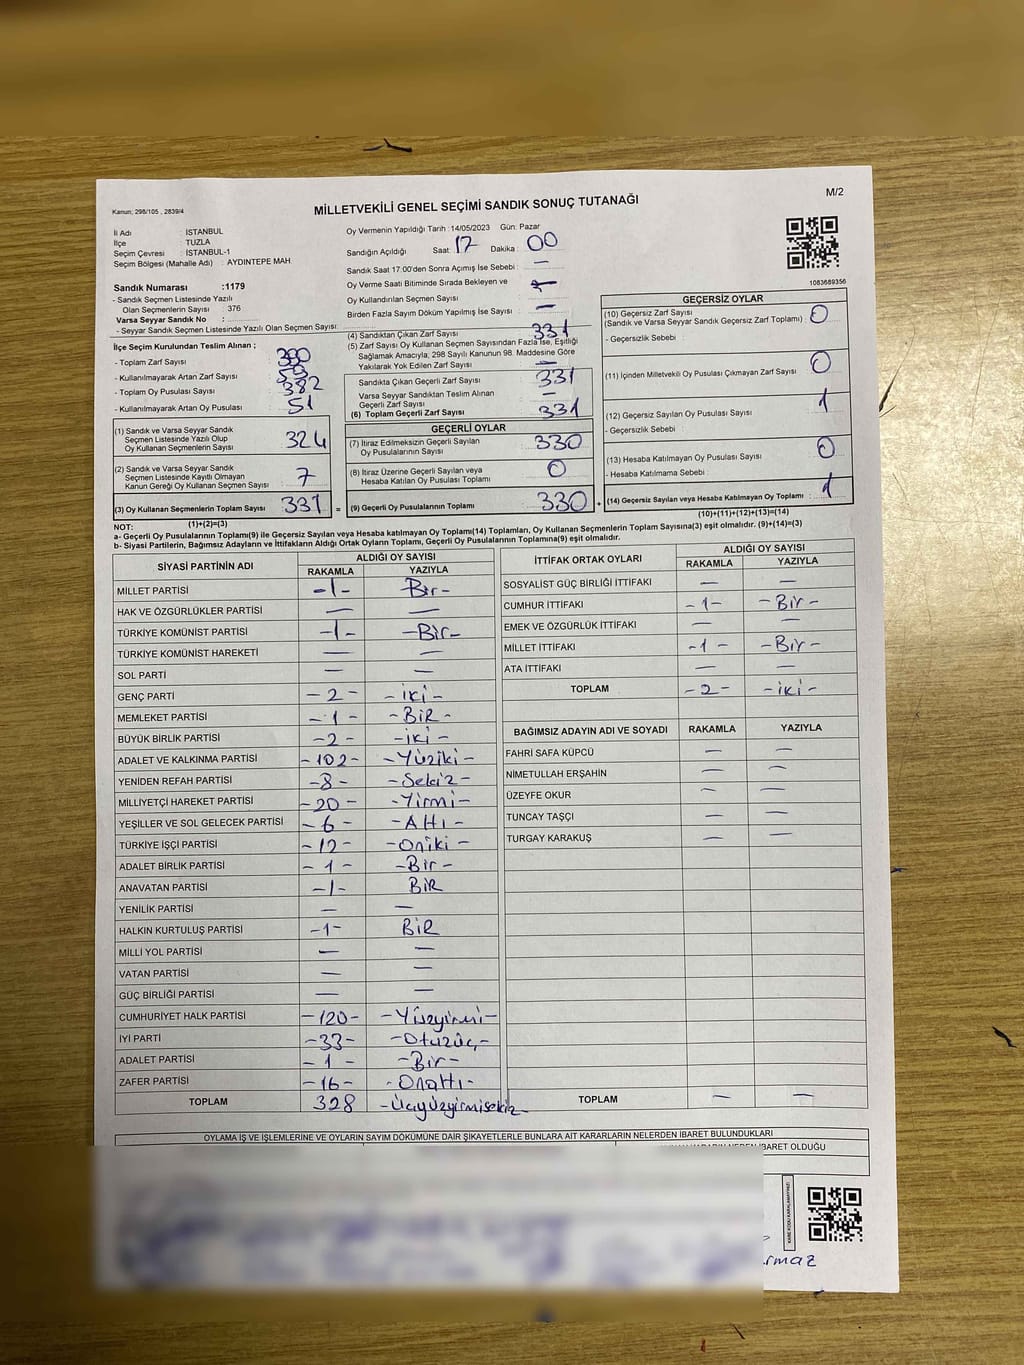 Kanun; 298/105 , 2839/4
MİLLETVEKİLİ GENEL SEÇİMİ SANDIK SONUÇ TUTANAĞI
M/2
İl Adı : İSTANBUL
İlçe : TUZLA
Seçim Çevresi : İSTANBUL-1
Seçim Bölgesi (Mahalle Adı) : AYDINTEPE MAH.
Sandık Numarası :1179
- Sandık Seçmen Listesinde Yazılı
Olan Seçmenlerin Sayısı : 376
Varsa Seyyar Sandık No :
- Seyyar Sandık Seçmen Listesinde Yazılı Olan Seçmen Sayısı:
İlçe Seçim Kurulundan Teslim Alınan ;
- Toplam Zarf Sayısı
- Kullanılmayarak Artan Zarf Sayısı
- Toplam Oy Pusulası Sayısı 382
- Kullanılmayarak Artan Oy Pusulası 51
(1) Sandık ve Varsa Seyyar Sandık
Seçmen Listesinde Yazılı Olup
Oy Kullanan Seçmenlerin Sayısı 324
(2) Sandık ve Varsa Seyyar Sandık
Seçmen Listesinde Kayıtlı Olmayan
Kanun Gereği Oy Kullanan Seçmen Sayısı 7
(3) Oy Kullanan Seçmenlerin Toplam Sayısı 331 =
(1)+(2)=(3)
Oy Vermenin Yapıldığı Tarih : 14/05/2023 Gün: Pazar
Sandığın Açıldığı Saat : 17 Dakika : 00
Sandık Saat 17:00'den Sonra Açımış İse Sebebi : —
Oy Verme Saati Bitiminde Sırada Bekleyen ve
Oy Kullandırılan Seçmen Sayısı
Birden Fazla Sayım Döküm Yapılmış İse Sayısı : —
(4) Sandıktan Çıkan Zarf Sayısı 331
(5) Zarf Sayısı Oy Kullanan Seçmen Sayısından Fazla İse, Eşitliği
Sağlamak Amacıyla, 298 Sayılı Kanunun 98. Maddesine Göre
Yakılarak Yok Edilen Zarf Sayısı —
Sandıkta Çıkan Geçerli Zarf Sayısı 331
Varsa Seyyar Sandıktan Teslim Alınan
Geçerli Zarf Sayısı —
(6) Toplam Geçerli Zarf Sayısı 331
GEÇERLİ OYLAR
(7) İtiraz Edilmeksizin Geçerli Sayılan
Oy Pusulalarının Sayısı 330
(8) İtiraz Üzerine Geçerli Sayılan veya
Hesaba Katılan Oy Pusulası Toplamı 0
(9) Geçerli Oy Pusulalarının Toplamı 330 +
1083689356
GEÇERSİZ OYLAR
(10) Geçersiz Zarf Sayısı
(Sandık ve Varsa Seyyar Sandık Geçersiz Zarf Toplamı) : 0
- Geçersizlik Sebebi :
(11) İçinden Milletvekili Oy Pusulası Çıkmayan Zarf Sayısı 0
(12) Geçersiz Sayılan Oy Pusulası Sayısı 1
- Geçersizlik Sebebi :
(13) Hesaba Katılmayan Oy Pusulası Sayısı 0
- Hesaba Katılmama Sebebi :
(14) Geçersiz Sayılan veya Hesaba Katılmayan Oy Toplamı 1
(10)+(11)+(12)+(13)=(14)
NOT:
a- Geçerli Oy Pusulalarının Toplamı(9) ile Geçersiz Sayılan veya Hesaba katılmayan Oy Toplamı(14) Toplamları, Oy Kullanan Seçmenlerin Toplam Sayısına(3) eşit olmalıdır. (9)+(14)=(3)
b- Siyasi Partilerin, Bağımsız Adayların ve İttifakların Aldığı Ortak Oyların Toplamı, Geçerli Oy Pusulalarının Toplamına(9) eşit olmalıdır.
SİYASİ PARTİNİN ADI ALDIĞI OY SAYISI
RAKAMLA YAZIYLA
MİLLET PARTİSİ -1- Bir-
HAK VE ÖZGÜRLÜKLER PARTİSİ — —
TÜRKİYE KOMÜNİST PARTİSİ -1- -Bir-
TÜRKİYE KOMÜNİST HAREKETİ — —
SOL PARTİ — —
GENÇ PARTİ -2- -iki-
MEMLEKET PARTİSİ -1- -BİR-
BÜYÜK BİRLİK PARTİSİ -2- -iki-
ADALET VE KALKINMA PARTİSİ -102- -Yüziki-
YENİDEN REFAH PARTİSİ -8- -Sekiz-
MİLLİYETÇİ HAREKET PARTİSİ -20- -Yirmi-
YEŞİLLER VE SOL GELECEK PARTİSİ -6- -Altı-
TÜRKİYE İŞÇİ PARTİSİ -12- -Oniki-
ADALET BİRLİK PARTİSİ -1- -Bir-
ANAVATAN PARTİSİ -1- BİR
YENİLİK PARTİSİ — —
HALKIN KURTULUŞ PARTİSİ -1- BİR
MİLLİ YOL PARTİSİ — —
VATAN PARTİSİ — —
GÜÇ BİRLİĞİ PARTİSİ — —
CUMHURİYET HALK PARTİSİ -120- -Yüzyirmi-
İYİ PARTİ -33- -Otuzüç-
ADALET PARTİSİ -1- -Bir-
ZAFER PARTİSİ -16- -Onaltı-
TOPLAM 328 -Üçyüzyirmisekiz-
İTTİFAK ORTAK OYLARI ALDIĞI OY SAYISI
RAKAMLA YAZIYLA
SOSYALİST GÜÇ BİRLİĞİ İTTİFAKI — —
CUMHUR İTTİFAKI -1- -Bir-
EMEK VE ÖZGÜRLÜK İTTİFAKI — —
MİLLET İTTİFAKI -1- -Bir-
ATA İTTİFAKI — —
TOPLAM -2- -iki-
BAĞIMSIZ ADAYIN ADI VE SOYADI RAKAMLA YAZIYLA
FAHRİ SAFA KÜPCÜ — —
NİMETULLAH ERŞAHİN — —
ÜZEYFE OKUR — —
TUNCAY TAŞÇI — —
TURGAY KARAKUŞ — —
TOPLAM — —
OYLAMA İŞ VE İŞLEMLERİNE VE OYLARIN SAYIM DÖKÜMÜNE DAİR ŞİKAYETLERLE BUNLARA AİT KARARLARIN NELERDEN İBARET BULUNDUKLARI
İBARET OLDUĞU